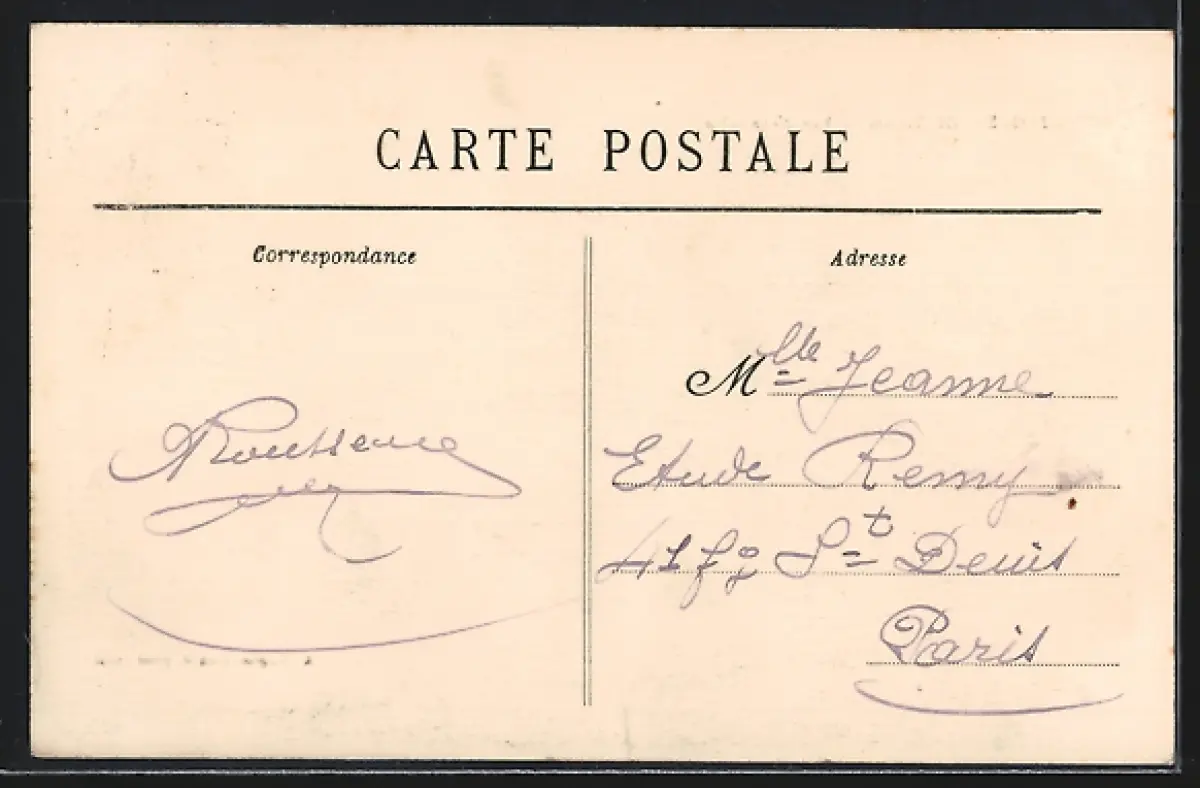 CARTE POSTALE
Correspondance
Adresse
Mlle Jeanne
Etude Remy
41 fg St Denis
Paris